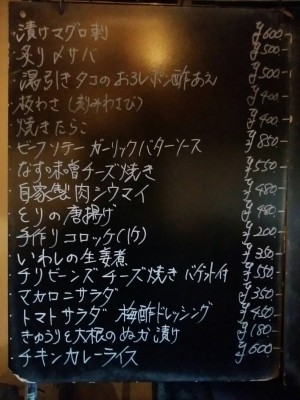 ・漬けマグロ刺 ¥600-
・炙り〆サバ ¥500-
・湯引きタコのおろしポン酢あえ ¥500-
・板わさ(刻みわさび) ¥400-
・焼きたらこ ¥400-
・ビーフソテー ガーリックバターソース ¥850-
・なすの味噌チーズ焼き ¥550-
・自家製肉シウマイ ¥480-
・とりの唐揚げ ¥480-
・手作りコロッケ(1ケ) ¥200-
・いわしの生姜煮 ¥350-
・チリビーンズチーズ焼き バゲット付 ¥550-
・マカロニサラダ ¥350-
・トマトサラダ 梅酢ドレッシング ¥450-
・きゅうりと大根のぬか漬け ¥180-
・チキンカレーライス ¥600-